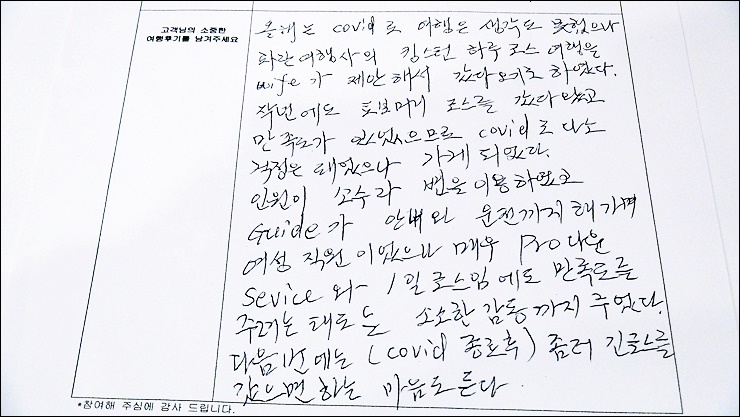 고객님의 소중한
여행후기를 남겨주세요
올해는 covid로 여행은 생각도 못했으나
파란여행사의 킹스턴 하루 코스 여행을
wife가 제안해서 갔다오기로 하였다.
작년에도 토버머리 코스를 갔다 왔고
만족도가 있었으므로 covid로 다소
걱정은 되었으나 가게 되었다.
인원이 소수라 밴을 이용하였고
Guide가 안내와 운전까지 해가며
여성 직원이었으나 매우 Pro다운
Sevice와 1일 코스임에도 만족도를
주려는 태도는 소소한 감동까지 주었다.
다음번에는 (covid 종료후) 좀더 긴 코스를
갔으면 하는 마음도 든다.
*참여해 주심에 감사 드립니다.